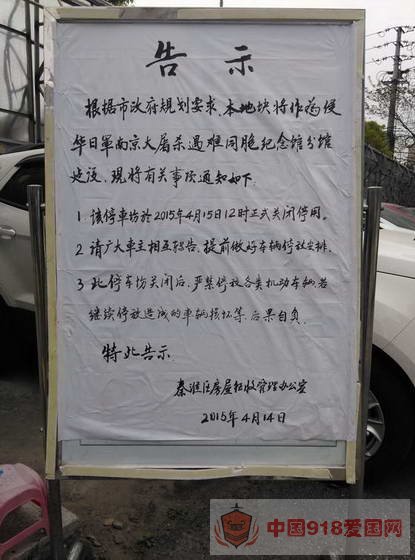 告示
根据市政府规划要求,本地块将作为侵
华日军南京大屠杀遇难同胞纪念馆分馆
建设,现将有关事项通知如下:
1.该停车场於2015年4月15日12时正式关闭停用。
2.请广大车主相互转告,提前做好车辆停放安排。
3.此停车场关闭后,严禁停放各类机动车辆,若
继续停放造成的车辆损坏等,后果自负。
特此告示
秦淮区房屋征收管理办公室
2015年4月14日
中国918爱国网